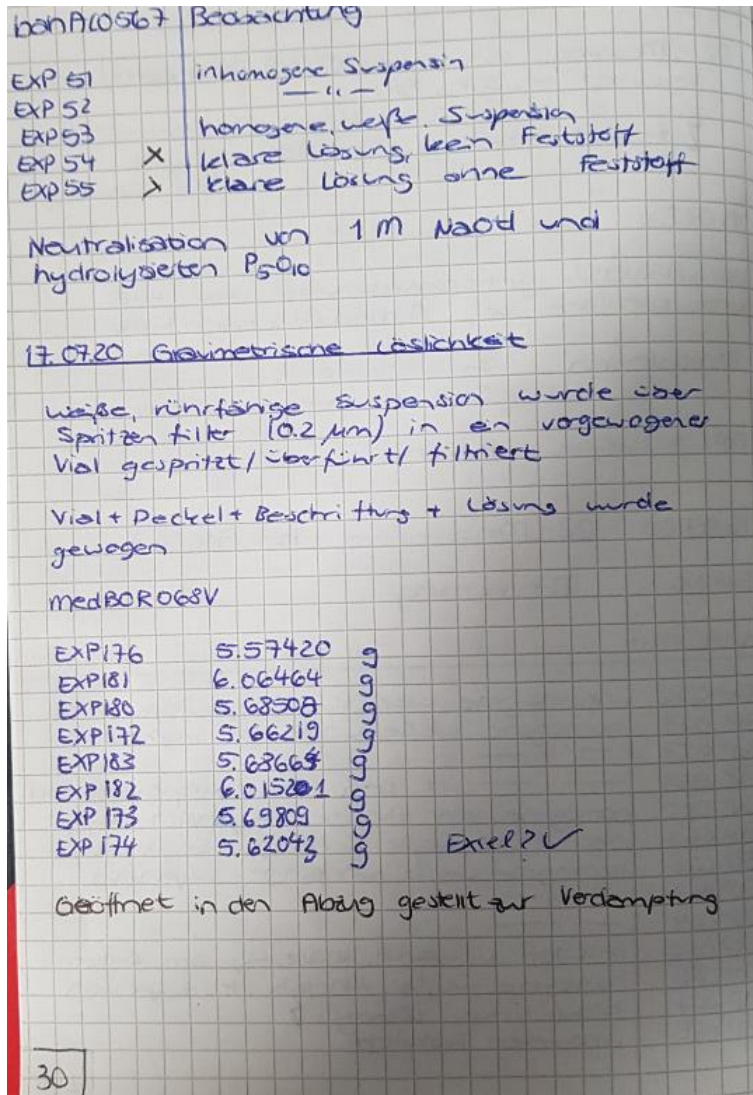 bahAC0567 | Beobachtung
EXP 51 inhomogene Suspensin
EXP 52 — " —
EXP 53 homogene, weiße Suspension
EXP 54 x klare Lösung, kein Feststoff
EXP 55 x klare Lösung ohne Feststoff
Neutralisation von 1 M NaOH und
hydrolysieten P5O10
17.07.20 Gravimetrische Löslichkeit
weiße, rührfähige Suspension wurde über
Spritzen filter (0.2 µm) in en vorgewogenes
Vial gespritzt/überführt/filtriert
Vial + Deckel + Beschriftung + Lösung wurde
gewogen
medBOR068V
EXP176 5.57420 g
EXP181 6.06464 g
EXP180 5.68508 g
EXP172 5.66219 g
EXP183 g
EXP 182 g
EXP 173 5.69809 g
EXP 174 5.62043 g Exel? ✓
Geöffnet in den Abzug gestellt zur Verdampfung
30